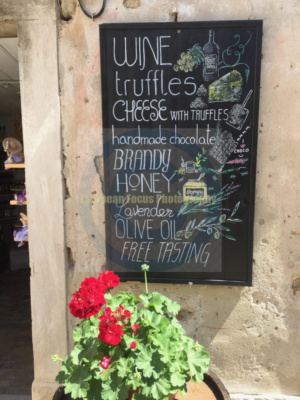 WINE
truffles
CHEESE WITH TRUFFLES
handmade chocolate
CHOCO
BRANDY
HONEY
Lavender
OLIVE OIL
FREE TASTING
European Focus Photography